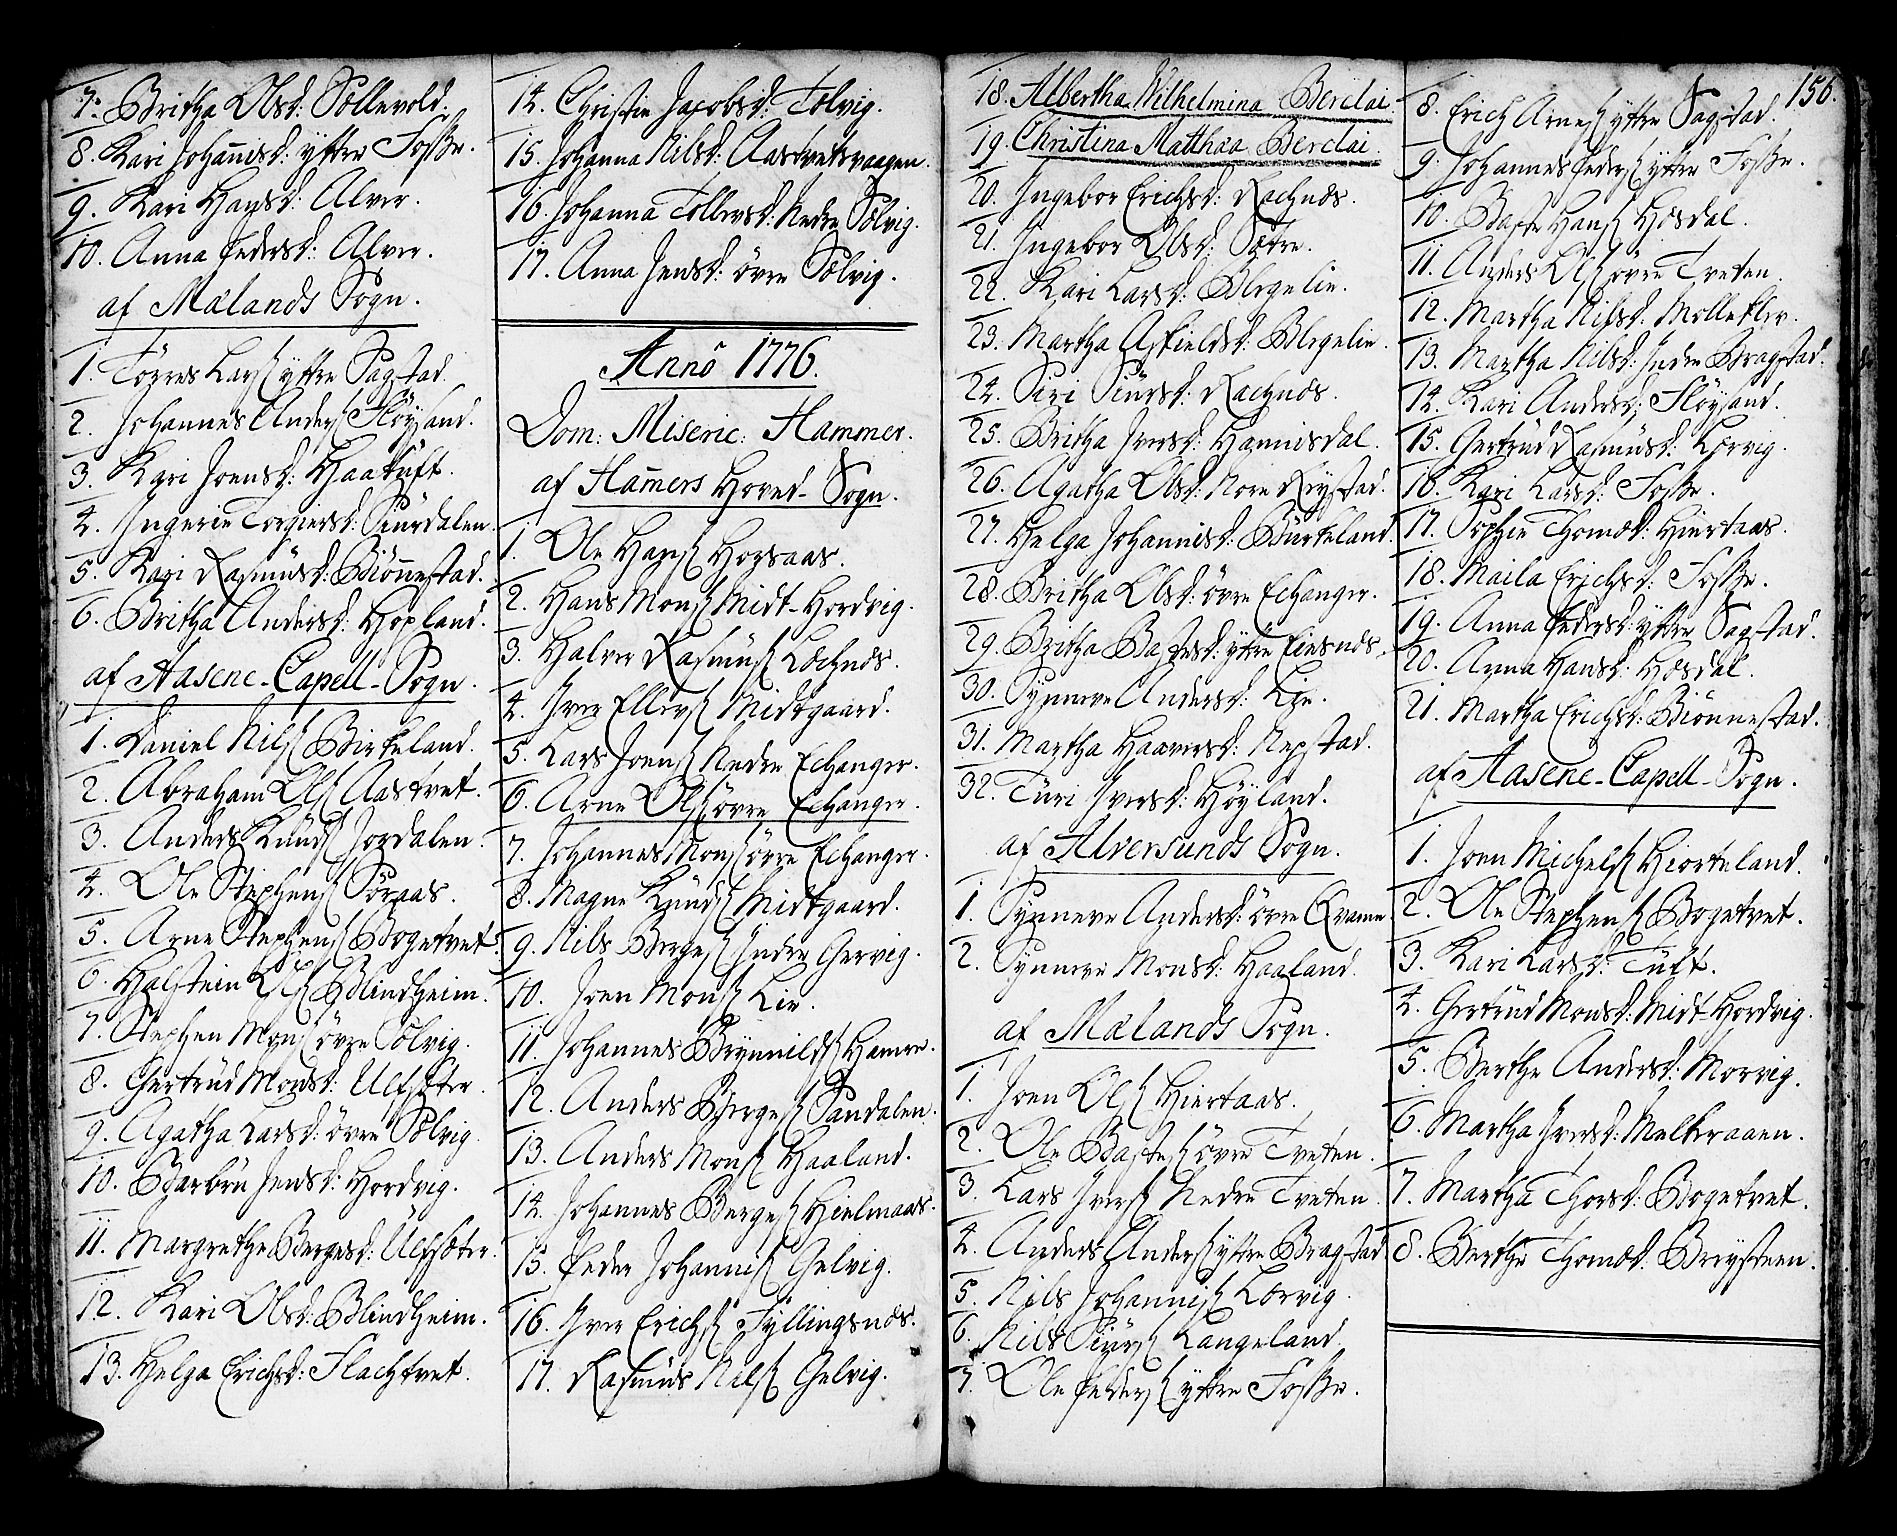 7. Britha Olsd: Søllevold.
8. Kari Johannisd: yttre Fosse.
9. Kari Hansd: Alver.
10. Anna Pedersd: Alver.
af Mælands Sogn.
1. Torres Lars yttre Sagstad.
2. Johannes Anders Fløysand.
3. Kari Joensd: Haatuft.
4. Ingerie Torgiersd: Siurdalen.
5. Kari Rasmusd: Biönnestad.
6. Britha Andersd: Hopland.
af Aasene-Capell-Sogn.
1. Daniel Nils Birkeland.
2. Abraham Ols Aastvet.
3. Anders Knuds Jordalen.
4. Ole Stephens Söraas.
5. Arne Stephens Bogetvet.
6. Halstein Ols Blindheim.
7. Stephen Mons övre Sølvig.
8. Gertrud Monsd: Ulfsæter.
9. Agatha Larsd: övre Sølvig.
10. Barbru Jensd: Hordvig.
11. Margrethe Bergesd: Ulfsæter.
12. Kari Olsd: Blindheim.
13. Helga Erichsd: Flachtvet.
14. Christie Jacobsd: Tolvig.
15. Johanna Nilsd: Aastvetsvaagen.
16. Johanna Tollevsd: Nedre Sølvig.
17. Anna Jensd: övre Sølvig.
Anno 1776.
Dom: Miseric: Hammer.
af Hamers Hoved-Sogn.
1. Ole Hans Horsaas.
2. Hans Mons Midt-Hordvig.
3. Halver Rasmus Læchnes.
4. Iver Ellevs Midtgaard.
5. Lars Joens Nedre Echanger.
6. Arne Ols övre Echanger.
7. Johannes Mons övre Echanger.
8. Magne Knuds Midtgaard.
9. Nils Berges Indre Gervig.
10. Joen Mons Lie.
11. Johannes Brynnilds Hamre.
12. Anders Berges Sandalen.
13. Anders Mons Haaland.
14. Johannes Berges Hielmaas.
15. Peder Johannis Gelvig.
16. Iver Erichs Fyllingsnæs.
17. Rasmus Nils Gelvig.
18. Albertha Wilhelmina Berclai
19. Christina Matthæa Berclai.
20. Ingebor Erichsd: Rachnæs.
21. Ingebor Olsd: Sætre.
22. Kari Larsd: Blegelie.
23. Martha Askieldsd: Blegelie.
24. Siri Siursd: Rachnæs.
25. Britha Iversd: Hannisdal.
26. Agatha Olsd: Nore Röystad.
27. Helga Johannisd: Burkeland.
28. Britha Olsd: övre Echanger.
29. Britha Bastesd: yttre Eiesnæs.
30. Synneve Andersd: Lie.
31. Martha Haaversd: Nepstad.
32. Turi Iversd: Höyland.
af Alversunds Sogn.
1. Synneve Andersd: övre Qvamme.
2. Synneve Monsd: Haaland.
af Mælands Sogn.
1. Joen Ols Hiertaas.
2. Ole Bastes övre Tveten.
3. Lars Ivers Nedre Tveten.
4. Anders Anders yttre Bragstad
5. Nils Johannis Lorvig.
6. Nils Siurs Langeland.
7. Ole Peders yttre Fosse.
156.
8. Erich Arnes yttre Sagstad.
9. Johannes Peders yttre Fosse.
10. Baste Hans Hosdal.
11. Anders Ols övre Tveten.
12. Martha Nilsd: Mollekler.
13. Martha Nilsd: Indre Bragstad.
14. Kari Andersd: Flöysand.
15. Gertrud Rasmusd: Lorvig.
16. Kari Larsd: Fosse.
17. Sophie Thomæd: Hiertaas.
18. Maila Erichsd: Fosse.
19. Anna Pedersd: yttre Sagstad.
20. Anna Hansd: Hosdal.
21. Martha Erichsd: Biönnestad.
af Aasene-Capell-Sogn.
1. Joen Michels Hiorteland.
2. Ole Stephens Bogetvet.
3. Kari Larsd: Tuft.
4. Gertrud Monsd: Midt-Hordvig.
5. Berthe Andersd: Morvig.
6. Martha Iversd: Melkeraaen.
7. Martha Thorsd: Bogetvet.
8. Berthe Thomæd: Bröysteen.